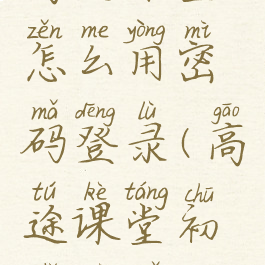 zěn me yòng mì
怎么用密
mǎ dēng lù gāo
码登录(高
tú kè táng chū
途课堂初